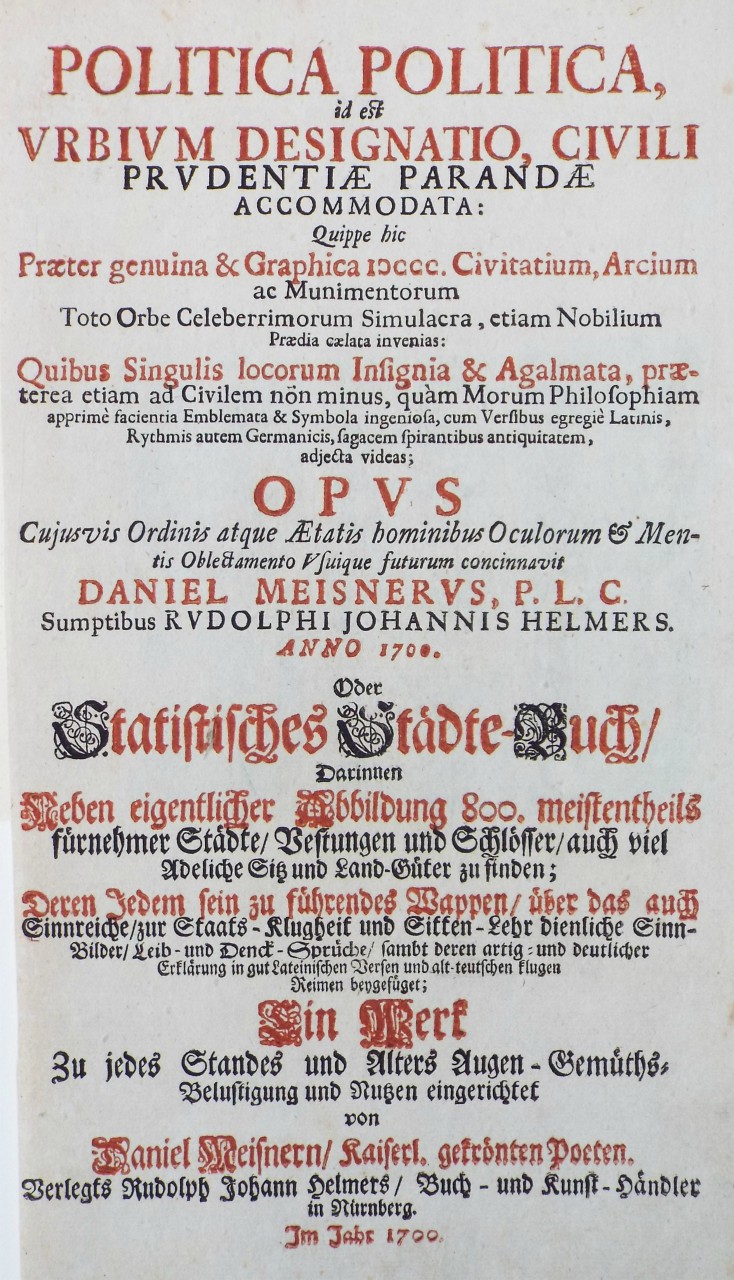 POLITICA POLITICA,
id est
VRBIVM DESIGNATIO, CIVILI
PRVDENTIÆ PARANDÆ
ACCOMMODATA:
Quippe hic
Præter genuina & Graphica IↃCCC. Civitatium, Arcium
ac Munimentorum
Toto Orbe Celeberrimorum Simulacra, etiam Nobilium
Prædia cælata invenias:
Quibus Singulis locorum Inſignia & Agalmata, præ-
terea etiam ad Civilem nōn minus, quàm Morum Philoſophiam
apprimè facientia Emblemata & Symbola ingenioſa, cum Verſibus egregiè Latinis,
Rythmis autem Germanicis, ſagacem ſpirantibus antiquitatem,
adjecta videas;
OPVS
Cujusvis Ordinis atque Ætatis hominibus Oculorum & Men-
tis Oblectamento Vſuique futurum concinnavit
DANIEL MEISNERVS, P. L. C.
Sumptibus RVDOLPHI JOHANNIS HELMERS.
ANNO 1700.
Oder
Statiſtiſches Städte-Buch/
Darinnen
Neben eigentlicher Abbildung 800. meiſtentheils
fürnehmer Städte/ Veſtungen und Schlöſſer/ auch viel
Adeliche Sitz und Land-Güter zu finden;
Deren Jedem ſein zu führendes Wappen/ über das auch
Sinnreiche/ zur Staats-Klugheit und Sitten-Lehr dienliche Sinn-
Bilder/ Leib- und Denck-Sprüche/ ſambt deren artig- und deutlicher
Erklärung in gut Lateiniſchen Verſen und alt-teutſchen klugen
Reimen beygefüget;
Ein Werk
Zu jedes Standes und Alters Augen-Gemüths-
Beluſtigung und Nutzen eingerichtet
von
Daniel Meiſnern/ Kaiſerl. gekrönten Poeten.
Verlegts Rudolph Johann Helmers/ Buch- und Kunſt-Händler
in Nürnberg.
Im Jahr 1700.